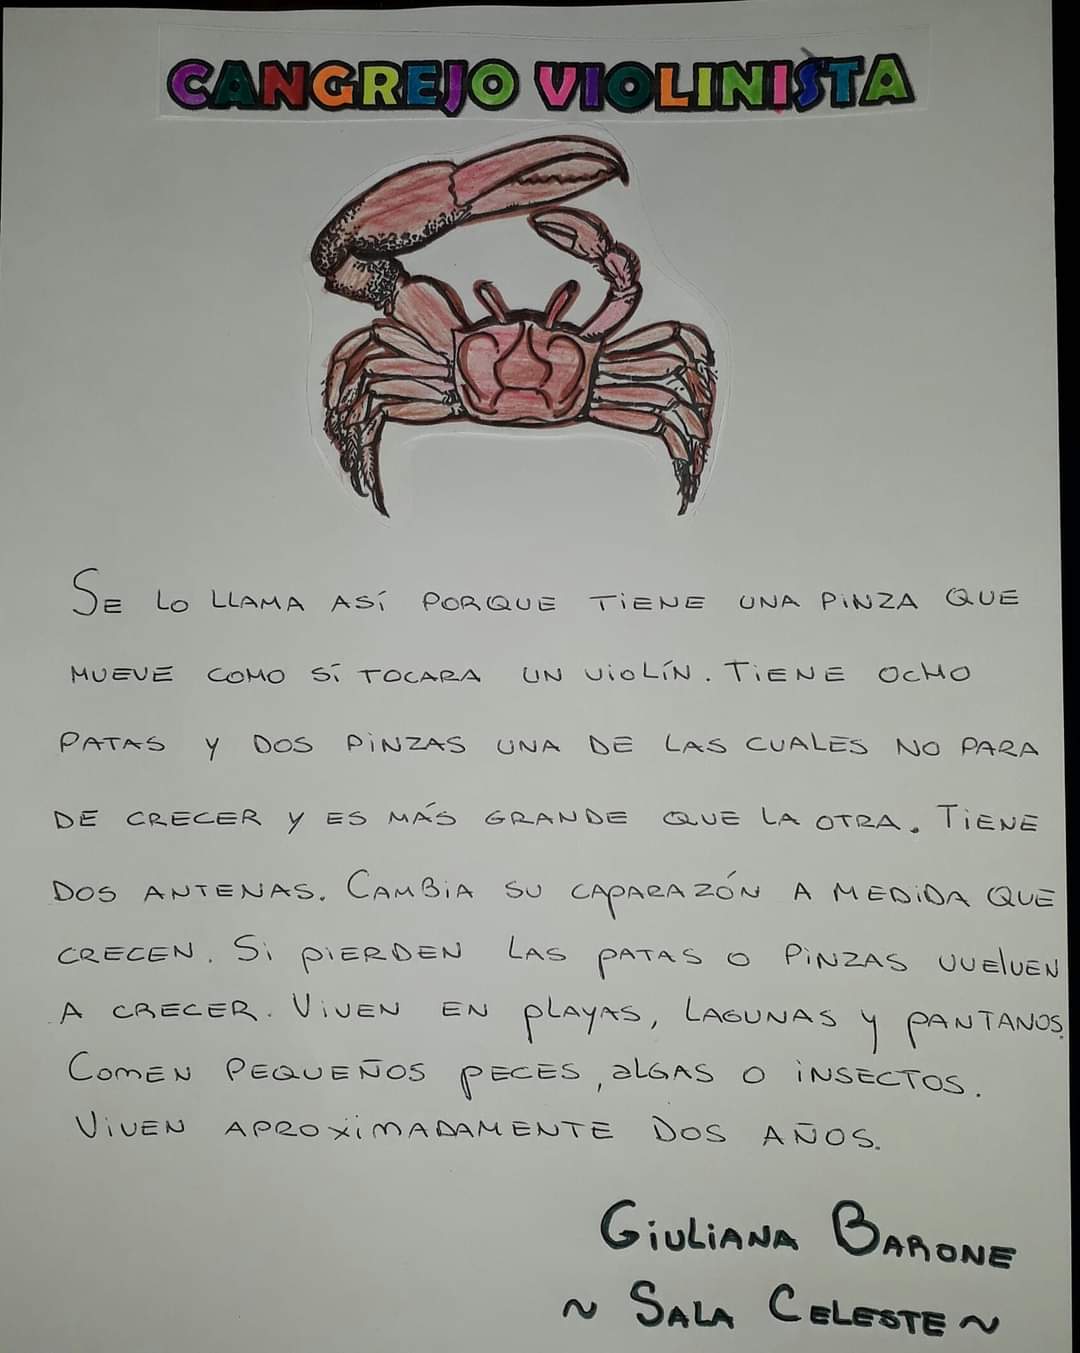 CANGREJO VIOLINISTA
SE LO LLAMA ASÍ PORQUE TIENE UNA PINZA QUE
MUEVE COMO SÍ TOCARA UN VIOLÍN. TIENE OCHO
PATAS Y DOS PINZAS UNA DE LAS CUALES NO PARA
DE CRECER Y ES MÁS GRANDE QUE LA OTRA. TIENE
DOS ANTENAS. CAMBIA SU CAPARAZÓN A MEDIDA QUE
CRECEN. SI PIERDEN LAS PATAS O PINZAS VUELVEN
A CRECER. VIVEN EN PLAYAS, LAGUNAS Y PANTANOS.
COMEN PEQUEÑOS PECES, ALGAS O INSECTOS.
VIVEN APROXIMADAMENTE DOS AÑOS.
GIULIANA BARONE
~ SALA CELESTE ~